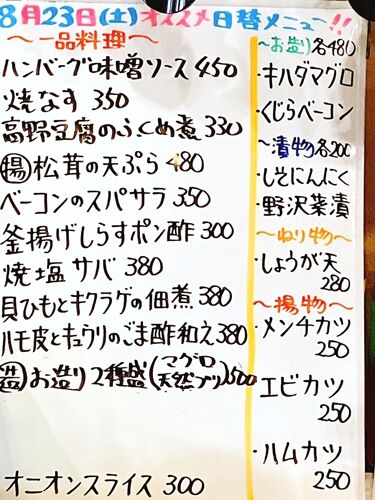 8月23日(土)オススメ日替メニュー!!
～一品料理～
ハンバーグ味噌ソース 450
焼なす 350
高野豆腐のふくめ煮 330
揚 松茸の天ぷら 480
ベーコンのスパサラ 350
釜揚げしらすポン酢 300
焼塩サバ 380
貝ひもとキクラゲの佃煮 380
ハモ皮とキュウリのごま酢和え 380
造 お造り2種盛(マグロ 天然ブリ)500
オニオンスライス 300
～お造り各480
・キハダマグロ
・くじらベーコン
～漬物各200
・しそにんにく
・野沢菜漬
～ねり物～
・しょうが天
280
～揚物～
・メンチカツ
250
・エビカツ
250
・ハムカツ
250